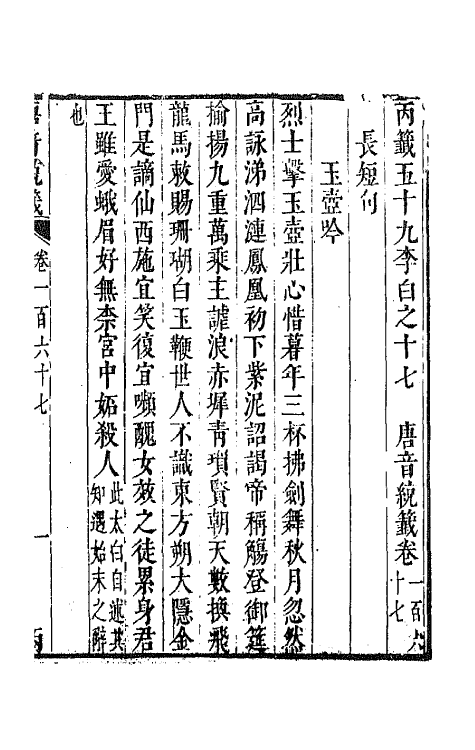 丙籤五十九李白之十七　唐音統籤卷一百六十七
長短句
玉壺吟
烈士擊玉壺壯心惜暮年三杯拂劍舞秋月忽然
高詠涕泗漣鳳凰初下紫泥詔謁帝稱觴登御筵
揄揚九重萬乘主謔浪赤墀青瑣賢朝天數換飛
龍馬敕賜珊瑚白玉鞭世人不識東方朔大隱金
門是謫仙西施宜笑復宜嚬醜女效之徒累身君
王雖愛蛾眉好無柰宮中妬殺人此太白自述其
知遇始末之辭
也
卷一百六十七
一